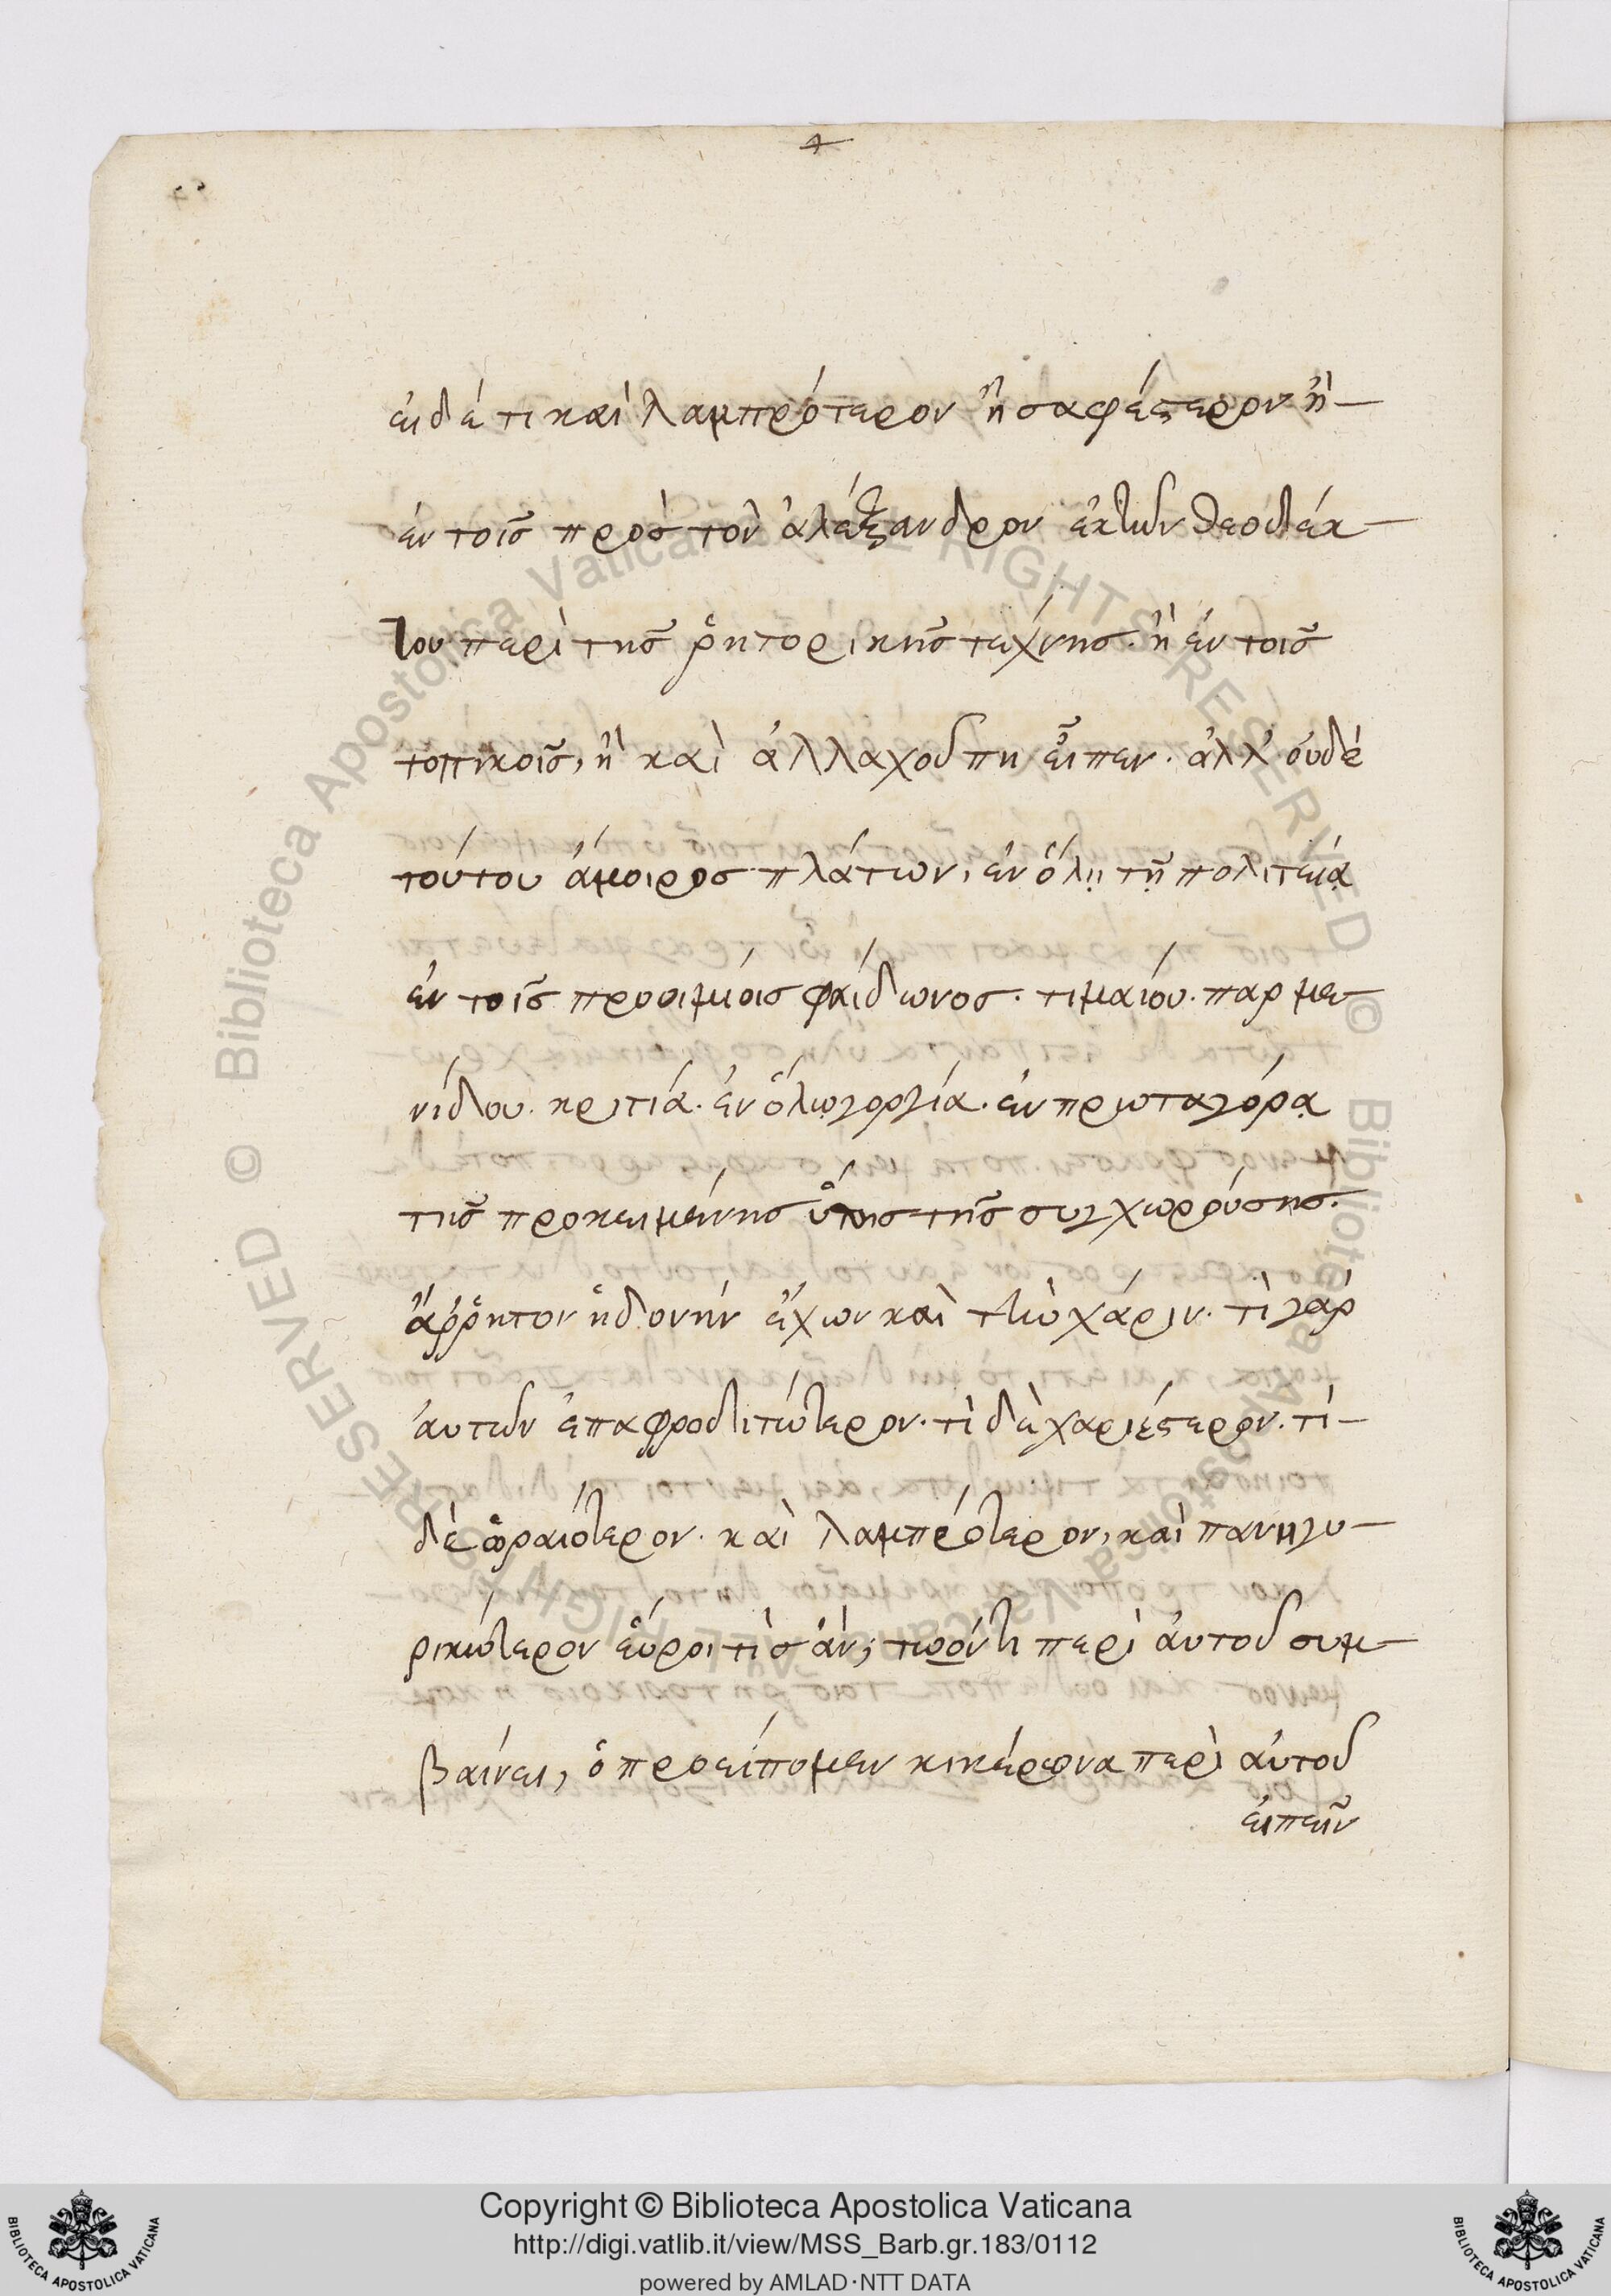 εἰ δέ τι καὶ λαμπρότερον ἢ σαφέστερον ἢ-
ἐν τοῖς πρὸς τὸν ἀλέξανδρον ἐκ τῶν θεοδέκ-
του περὶ τῆς ῥητορικῆς τέχνης. ἢ ἐν τοῖς
τοπικοῖς, ἢ καὶ ἀλλαχοῦ πη εἶπεν. ἀλλ' οὐδὲ
τούτου ἄμοιρος πλάτων, ἐν ὅλῃ τῇ πολιτείᾳ
ἐν τοῖς προοιμίοις φαίδωνος. τιμαίου. παρμε-
νίδου. κριτία. ἐν ὅλῳ γοργία. ἐν πρωταγόρᾳ
τῆς προκειμένης ὕλης τῆς συγχωρούσης.
ἄῤῥητον ἡδονὴν ἔχων καὶ τὴν χάριν. τί γὰρ
αὐτῶν ἐπαφροδιτώτερον. τί δὲ χαριέστερον. τί-
δὲ ὡραιότερον. καὶ λαμπρότερον, καὶ πανηγυ-
ρικώτερον εὕροι τὶς ἂν; τῷ ὄντι περὶ αὐτοῦ συμ-
βαίνει, ὃ προείπομεν κικέρωνα περὶ αὐτοῦ
εἰπεῖν
Copyright © Biblioteca Apostolica Vaticana
http://digi.vatlib.it/view/MSS_Barb.gr.183/0112
powered by AMLAD·NTT DATA
© Biblioteca Apostolica Vaticana ALL RIGHTS RESERVED
© Biblioteca Apostolica Vaticana ALL RIGHTS RESERVED
BIBLIOTECA APOSTOLICA VATICANA
BIBLIOTECA APOSTOLICA VATICANA